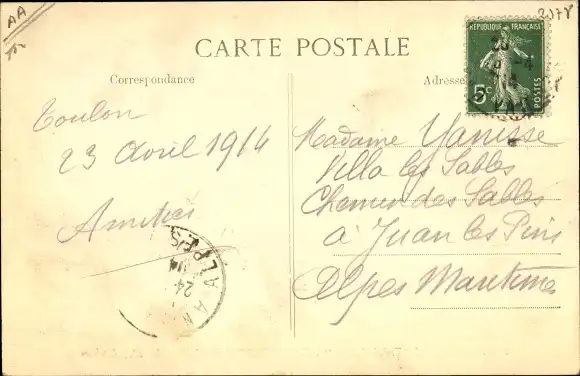 AA
2078
RÉPUBLIQUE FRANÇAISE
5c
POSTES
CARTE POSTALE
Correspondance
Adresse
Toulon
23 Avril 1914
Amitiés
Madame Vanisse
Villa les Sables
Chemin des Sables
à Juan les Pins
Alpes Maritimes
24
ALPES